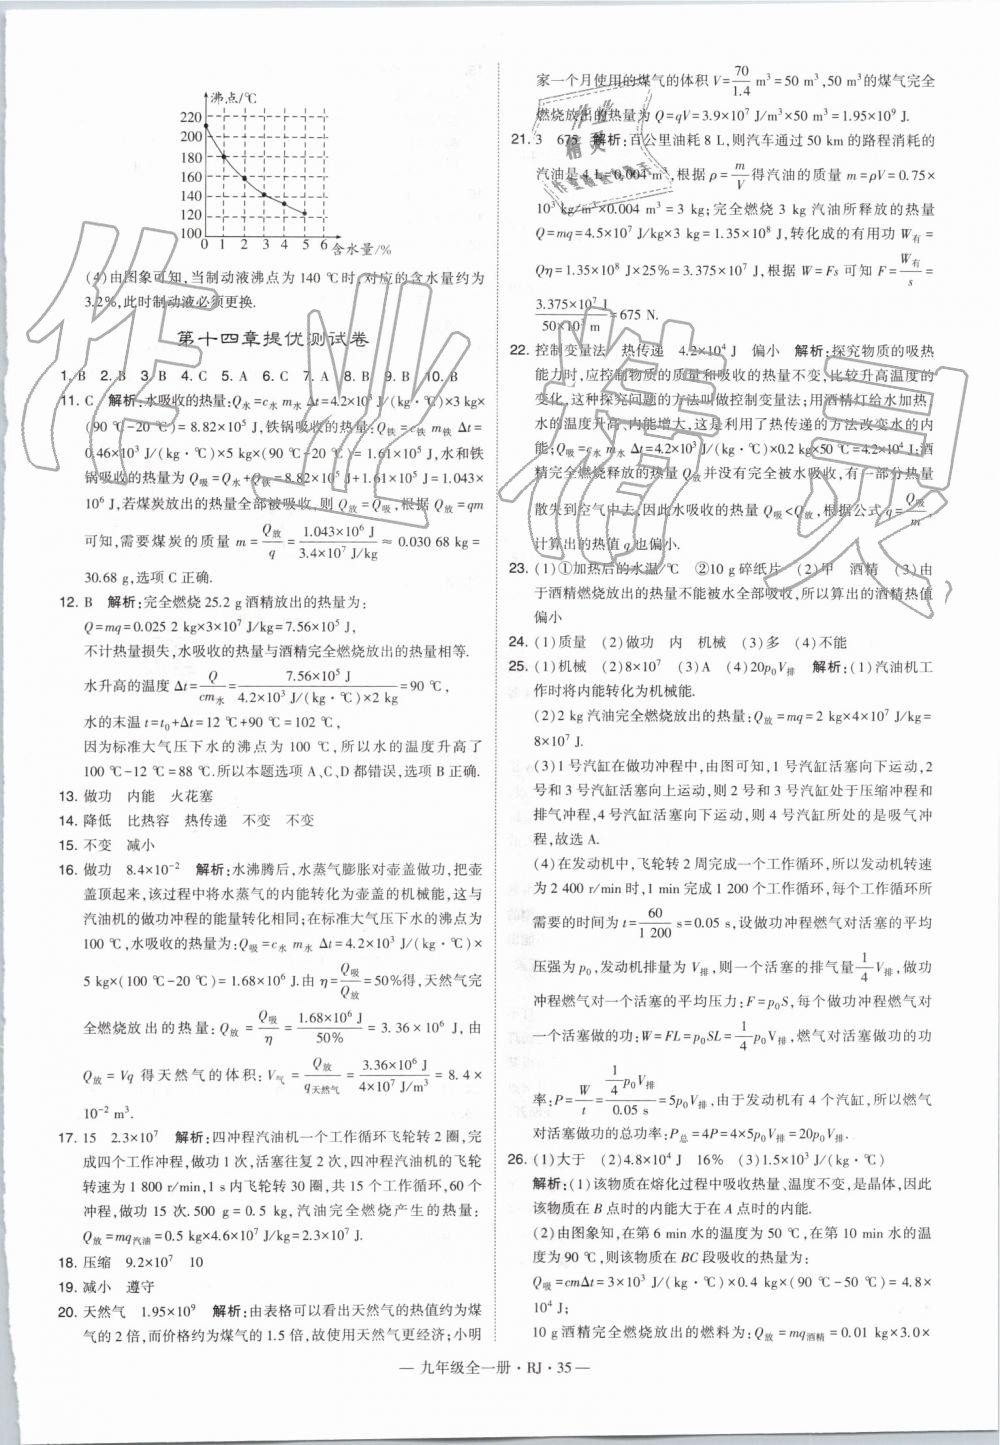 沸点/℃
220
200
180
160
140
120
100
0 1 2 3 4 5 6 含水量/%
(4)由图象可知,当制动液沸点为 140 ℃时,对应的含水量约为
3.2%,此时制动液必须更换.
第十四章提优测试卷
1. B 2. B 3. B 4. C 5. A 6. C 7. A 8. B 9. B 10. B
11. C 解析:水吸收的热量:Q水=c水 m水 Δt=4.2×10³ J/(kg·℃)×3 kg×
(90 ℃-20 ℃)=8.82×10⁵ J,铁锅吸收的热量:Q铁=c铁 m铁 Δt=
0.46×10³ J/(kg·℃)×5 kg×(90 ℃-20 ℃)=1.61×10⁵ J,水和铁
锅吸收的热量为Q吸=Q水+Q铁=8.82×10⁵ J+1.61×10⁵ J=1.043×
10⁶ J,若煤炭放出的热量全部被吸收,则 Q放=Q吸,根据 Q放=qm
可知,需要煤炭的质量 m=Q放/q=1.043×10⁶ J/3.4×10⁷ J/kg≈0.030 68 kg=
30.68 g,选项 C 正确.
12. B 解析:完全燃烧 25.2 g酒精放出的热量为:
Q=mq=0.025 2 kg×3×10⁷ J/kg=7.56×10⁵ J,
不计热量损失,水吸收的热量与酒精完全燃烧放出的热量相等.
水升高的温度 Δt=Q/cm水=7.56×10⁵ J/4.2×10³ J/(kg·℃)×2 kg=90 ℃,
水的末温 t=t₀+Δt=12 ℃+90 ℃=102 ℃,
因为标准大气压下水的沸点为 100 ℃,所以水的温度升高了
100 ℃-12 ℃=88 ℃.所以本题选项 A、C、D 都错误,选项 B 正确.
13. 做功 内能 火花塞
14. 降低 比热容 热传递 不变 不变
15. 不变 减小
16. 做功 8.4×10⁻² 解析:水沸腾后,水蒸气膨胀对壶盖做功,把壶
盖顶起来,该过程中将水蒸气的内能转化为壶盖的机械能,这与
汽油机的做功冲程的能量转化相同;在标准大气压下水的沸点为
100 ℃,水吸收的热量为:Q吸=c水 m水 Δt=4.2×10³ J/(kg·℃)×
5 kg×(100 ℃-20 ℃)=1.68×10⁶ J.由 η=Q吸/Q放=50%得,天然气完
全燃烧放出的热量:Q放=Q吸/η=1.68×10⁶ J/50%=3.36×10⁶ J,由
Q放=Vq 得天然气的体积:V气=Q放/q天然气=3.36×10⁶ J/4×10⁷ J/m³=8.4×
10⁻² m³.
17. 15 2.3×10⁷ 解析:四冲程汽油机一个工作循环飞轮转 2 圈,完
成四个工作冲程,做功 1 次,活塞往复 2 次;四冲程汽油机的飞轮
转速为 1 800 r/min,1 s 内飞轮转 30 圈,共 15 个工作循环,60 个
冲程,做功 15 次.500 g=0.5 kg,汽油完全燃烧产生的热量:
Q放=mq汽油=0.5 kg×4.6×10⁷ J/kg=2.3×10⁷ J.
18. 压缩 9.2×10⁷ 10
19. 减小 遵守
20. 天然气 1.95×10⁹ 解析:由表格可以看出天然气的热值约为煤
气的 2 倍,而价格约为煤气的 1.5 倍,故使用天然气更经济;小明
家一个月使用的煤气的体积 V=70/1.4 m³=50 m³,50 m³的煤气完全
燃烧放出的热量为 Q=qV=3.9×10⁷ J/m³×50 m³=1.95×10⁹ J.
21. 3 675 解析:百公里油耗 8 L,则汽车通过 50 km 的路程消耗的
汽油是 4 L=0.004 m³,根据 ρ=m/V得汽油的质量 m=ρV=0.75×
10³ kg/m³×0.004 m³=3 kg;完全燃烧 3 kg 汽油所释放的热量
Q=mq=4.5×10⁷ J/kg×3 kg=1.35×10⁸ J,转化成的有用功 W有=
Qη=1.35×10⁸ J×25%=3.375×10⁷ J,根据 W=Fs 可知 F=W有/s=
3.375×10⁷ J/50×10³ m=675 N.
22. 控制变量法 热传递 4.2×10⁴ J 偏小 解析:探究物质的吸热
能力时,应控制物质的质量和吸收的热量不变,比较升高温度的
变化,这种探究问题的方法叫做控制变量法;用酒精灯给水加热,
水的温度升高,内能增大,这是利用了热传递的方法改变水的内
能;Q吸=c水 m水 Δt=4.2×10³ J/(kg·℃)×0.2 kg×50 ℃=4.2×10⁴ J;酒
精完全燃烧释放的热量 Q放并没有完全被水吸收,有一部分热量
散失到空气中去,因此水吸收的热量 Q吸<Q放,根据公式 q=Q吸/m,
计算出的热值 q也偏小.
23. (1)①加热后的水温/℃ ②10 g碎纸片 (2)甲 酒精 (3)由
于酒精燃烧放出的热量不能被水全部吸收,所以算出的酒精热值
偏小
24. (1)质量 (2)做功 内 机械 (3)多 (4)不能
25. (1)机械 (2)8×10⁷ (3)A (4)20p₀V排 解析:(1)汽油机工
作时将内能转化为机械能.
(2)2 kg 汽油完全燃烧放出的热量:Q放=mq=2 kg×4×10⁷ J/kg=
8×10⁷ J.
(3)1 号汽缸在做功冲程中,由图可知,1 号汽缸活塞向下运动,2
号和 3 号汽缸活塞向上运动,则 2 号和 3 号汽缸处于压缩冲程和
排气冲程,4 号汽缸活塞向下运动,则 4 号汽缸所处的是吸气冲
程,故选 A.
(4)在发动机中,飞轮转 2 周完成一个工作循环,所以发动机转速
为 2 400 r/min 时,1 min 完成 1 200 个工作循环,每个工作循环所
需要的时间为 t=60/1 200 s=0.05 s,设做功冲程燃气对活塞的平均
压强为 p₀,发动机排量为 V排,则一个活塞的排气量1/4V排,做功
冲程燃气对一个活塞的平均压力:F=p₀S,每个做功冲程燃气对
一个活塞做的功:W=FL=p₀SL=1/4p₀V排,燃气对活塞做功的功
率:P=W/t=1/4p₀V排/0.05 s=5p₀V排,由于发动机有 4 个汽缸,所以燃气
对活塞做功的总功率:P总=4P=4×5p₀V排=20p₀V排.
26. (1)大于 (2)4.8×10⁴ J 16% (3)1.5×10³ J/(kg·℃)
解析:(1)该物质在熔化过程中吸收热量,温度不变,是晶体,因此
该物质在 B 点时的内能大于在 A 点时的内能.
(2)由图象知,在第 6 min 水的温度为 50 ℃,在第 10 min 水的温
度为 90 ℃,则该物质在 BC 段吸收的热量为:
Q吸=cmΔt=3×10³ J/(kg·℃)×0.4 kg×(90 ℃-50 ℃)=4.8×
10⁴ J;
10 g酒精完全燃烧放出的燃料为:Q放=mq酒精=0.01 kg×3.0×
— 九年级全一册·RJ·35 —
作业精灵